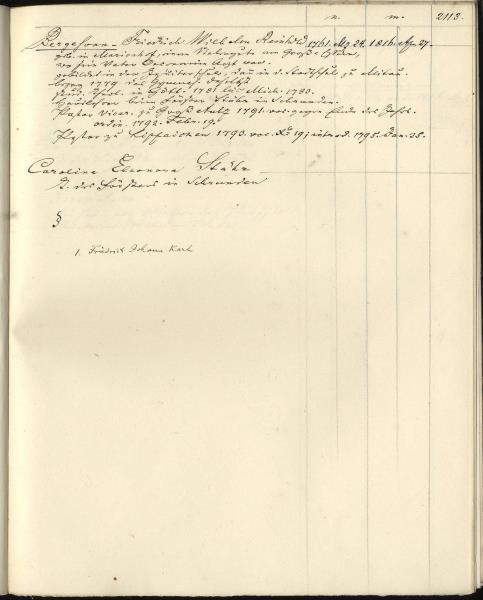 n. m. 2113.
Bergesonn - Friedrich Wilhelm Reinhold 1761. Mz. 24. 1816. Ap. 27.
geb. in Marienhof, einem Nebengute am Groß-
wo sein Vater war.
gebildet in der, dann in d. Stadtschule zu Mitau.
bezog 1779 das Gymnas. daselbst
stud. Theol. in Gött. 1781 bis Mich. 1783.
Hauslehrer beim Förster Stähr in Schrunden.
Pastor Vicar. zu Groß Autz 1791. vor. gegen Ende des Jahres.
ordin. 1792. Febr. 19.
Pastor zu Lippaicken 1793. introd. 1795. Jan. 25.
Caroline Eleonora Stähr
T. des Försters in Schrunden
§
1. Friedrich Johann Karl